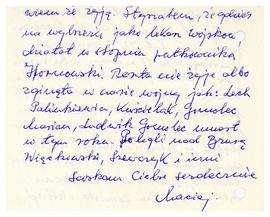 wiem że żyją. Słyszałem, że gdzieś
na wybrzeżu jako lekarz wojskowy
działał w stopniu pułkownika
Reszta nie żyje albo
zginęła w czasie wojny jak: Lech
Kuścielak, Gromolec
Marian, Ludwik Gromolec umarł
w tym roku. Polegli nad Bzurą
Więckowski, Szewczyk i inni
Ściskam Ciebie serdecznie
Maciej